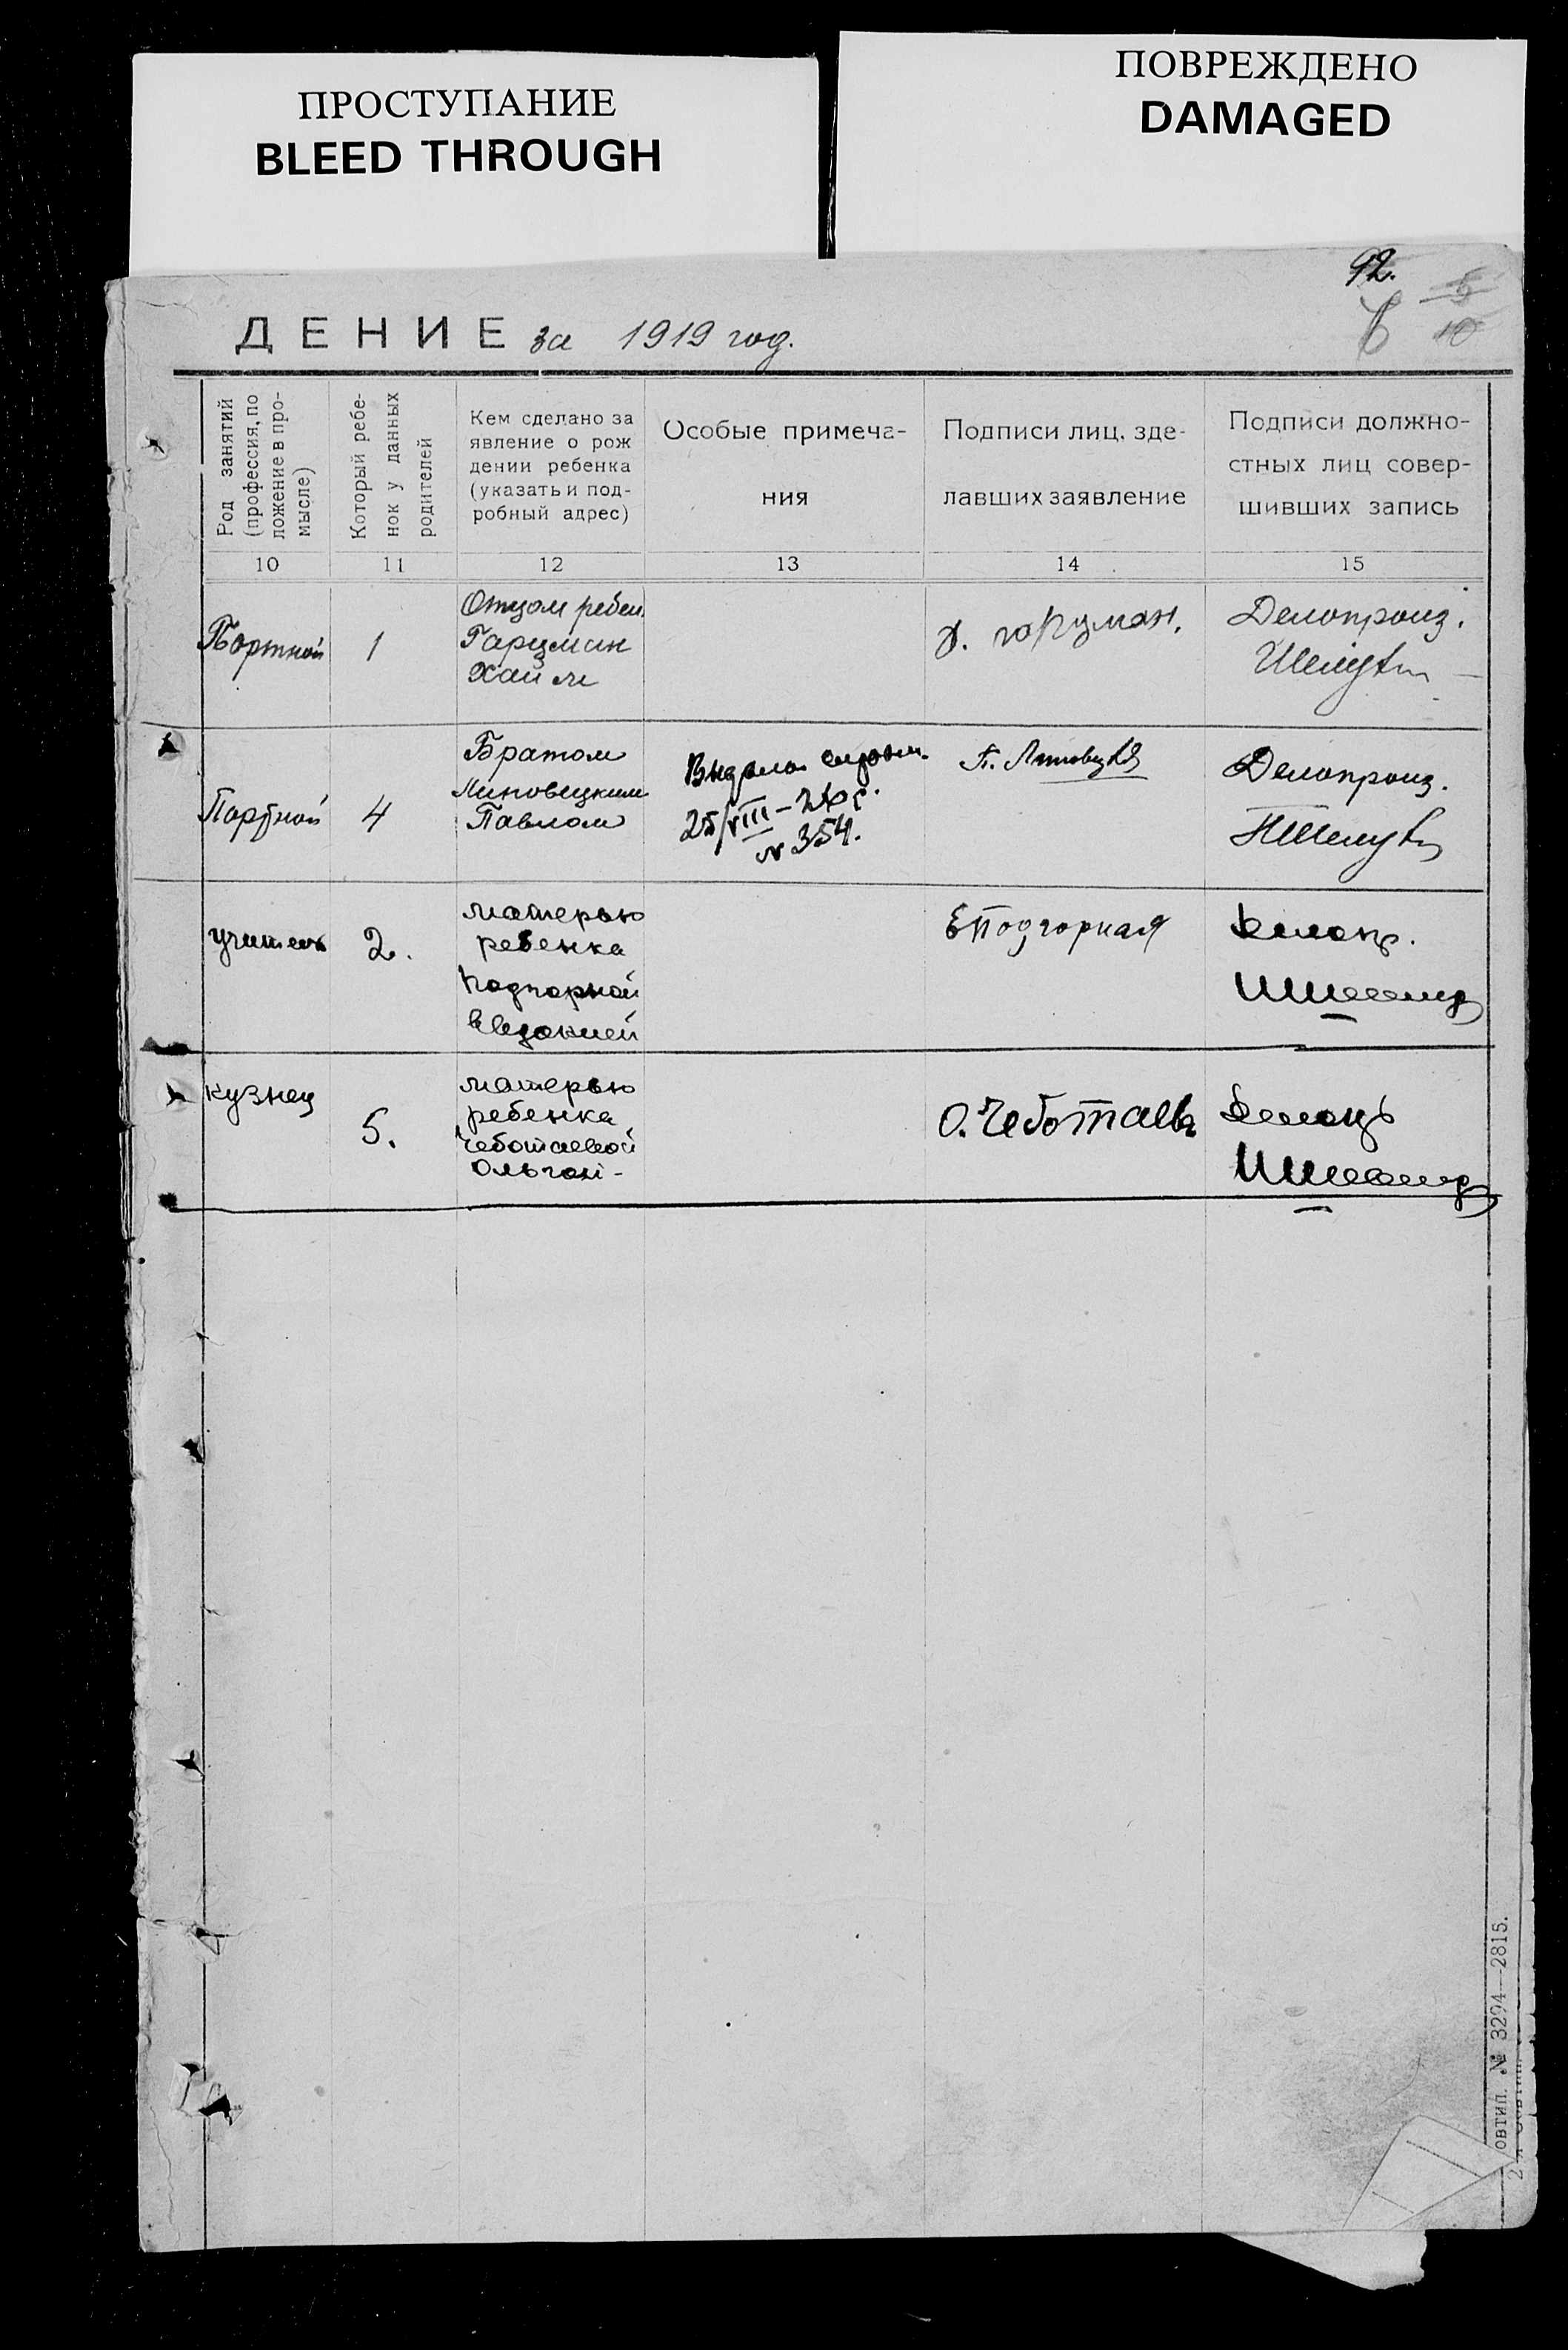 ПРОСТУПАНИЕ
BLEED THROUGH
ПОВРЕЖДЕНО
DAMAGED
92.
ДЕНИЕ за 1919 год.
Род занятий
(профессия, по
ложение в про-
мысле)
Который ребе-
нок у данных
родителей
Кем сделано за
явление о рож
дении ребенка
(указать и под-
робный адрес)
Особые примеча-
ния
Подписи лиц, зде-
лавших заявление
Подписи должно-
стных лиц совер-
шивших запись
10
11
12
13
14
15
Портной
1
Отцом ребен.
Гарцман
Хайм
Делопроиз.
Портной
4
Братом
Липовецким
Павлом
25/VIII-
№ 354.
Делопроиз.
учитель
2.
матерью
ребенка
Подгорной
Евдокией
ЕПодгорная
Делопр.
кузнец
5.
матерью
ребенка
Чеботаевой
Ольгой-
О. Чеботаева
Делопр
овтип. № 3294—2815.